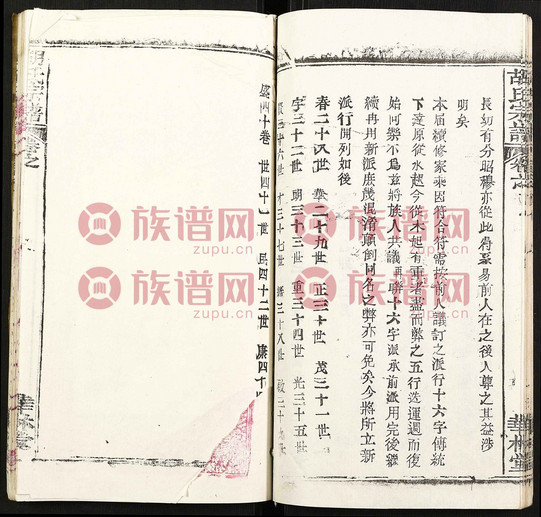 胡氏宗譜
華林堂
長幼有分昭穆亦從此得系易前人在之後人尊之其益涉
明矣
本届續修家乘因符合符需按前人議訂之派行十六字傳統
下達原從水起今從木起有重者盡而弊之五行迭運週而復
始何樂不爲茲將族人共議再聯十六字派承前派用完後繼
續再用新派庶幾混淆顛倒同名之弊亦可免矣今將所立新
派行開列如後
春二十八世 發二十九世 正三十世 茂三十一世
宇三十二世 明三十三世 重三十四世 光三十五世
三十六世 三十七世 三十八世
四十卷 世四十一世 民四十二世 廉四十
華林堂
族谱网
zupu.cn
族谱网
zupu.cn
族谱网
zupu.cn
族谱网
zupu.cn